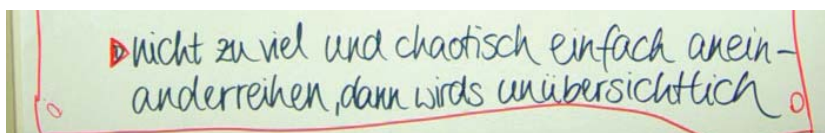 nicht zu viel und chaotisch einfach anein-
anderreihen, dann wirds unübersichtlich